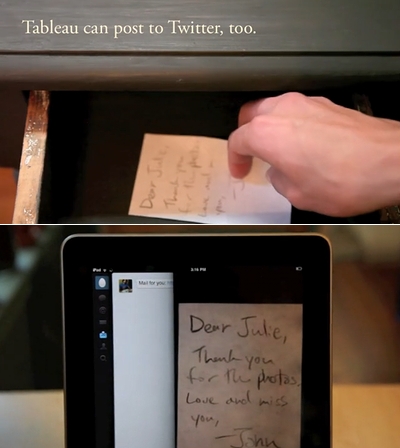 Tableau can post to Twitter, too.
Dear Julie,
Thank you
for the photos
Love and m
- J
iPad
3:16 PM
Mail for you:
Dear Julie,
Thank you
for the photos.
Love and miss
you,
-John